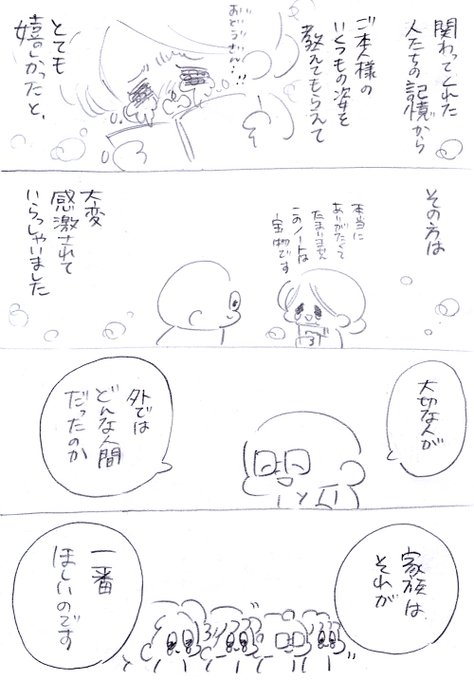 関わってくれた
人たちの記憶から
ご本人様の
いくつもの姿を
教えてもらえて
おとうさん…!!
とても
嬉しかったと、
その方は
本当に
ありがたくて
たまりません
このノートは
宝物です
大変
感激されて
いらっしゃいました
大切な人が
外では
どんな人間
だったのか
家族は、
それが
一番
ほしいのです